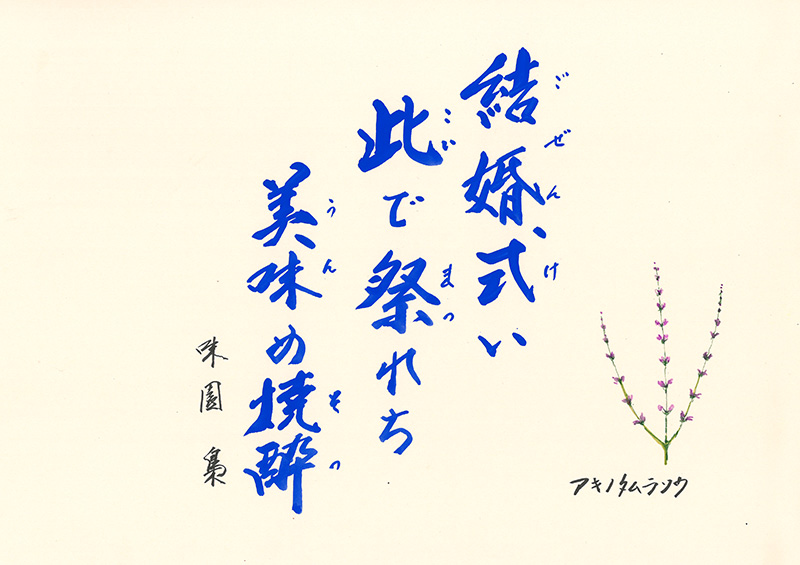 ごぜんけ
結婚式い
こい まつ
此で祭れち
うん そつ
美味め焼酔
味園 梟
アキノタムラソウ